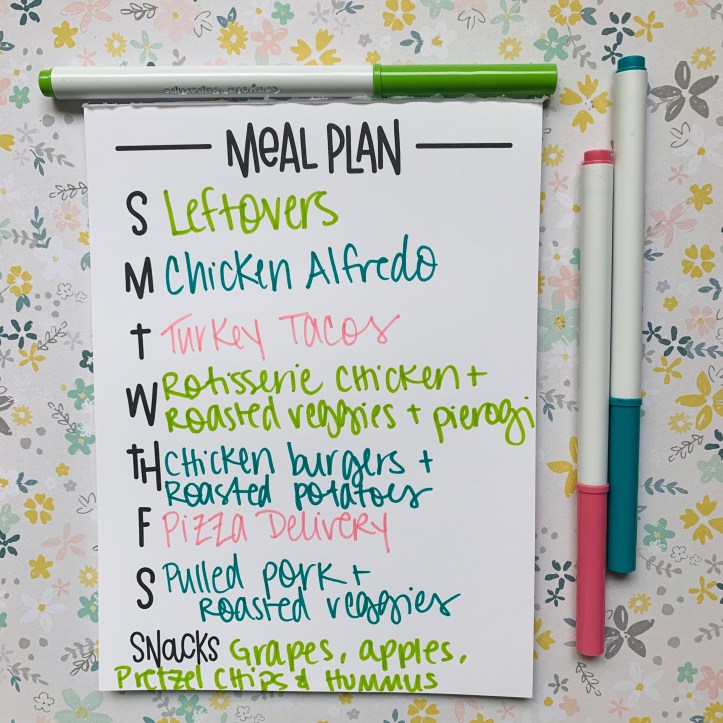 MEAL PLAN
S Leftovers
M Chicken Alfredo
T Turkey Tacos
W Rotisserie Chicken +
Roasted veggies + pierogi
TH Chicken burgers +
Roasted potatoes
F Pizza Delivery
S Pulled pork +
Roasted veggies
SNACKS Grapes, apples,
Pretzel Chips & Hummus